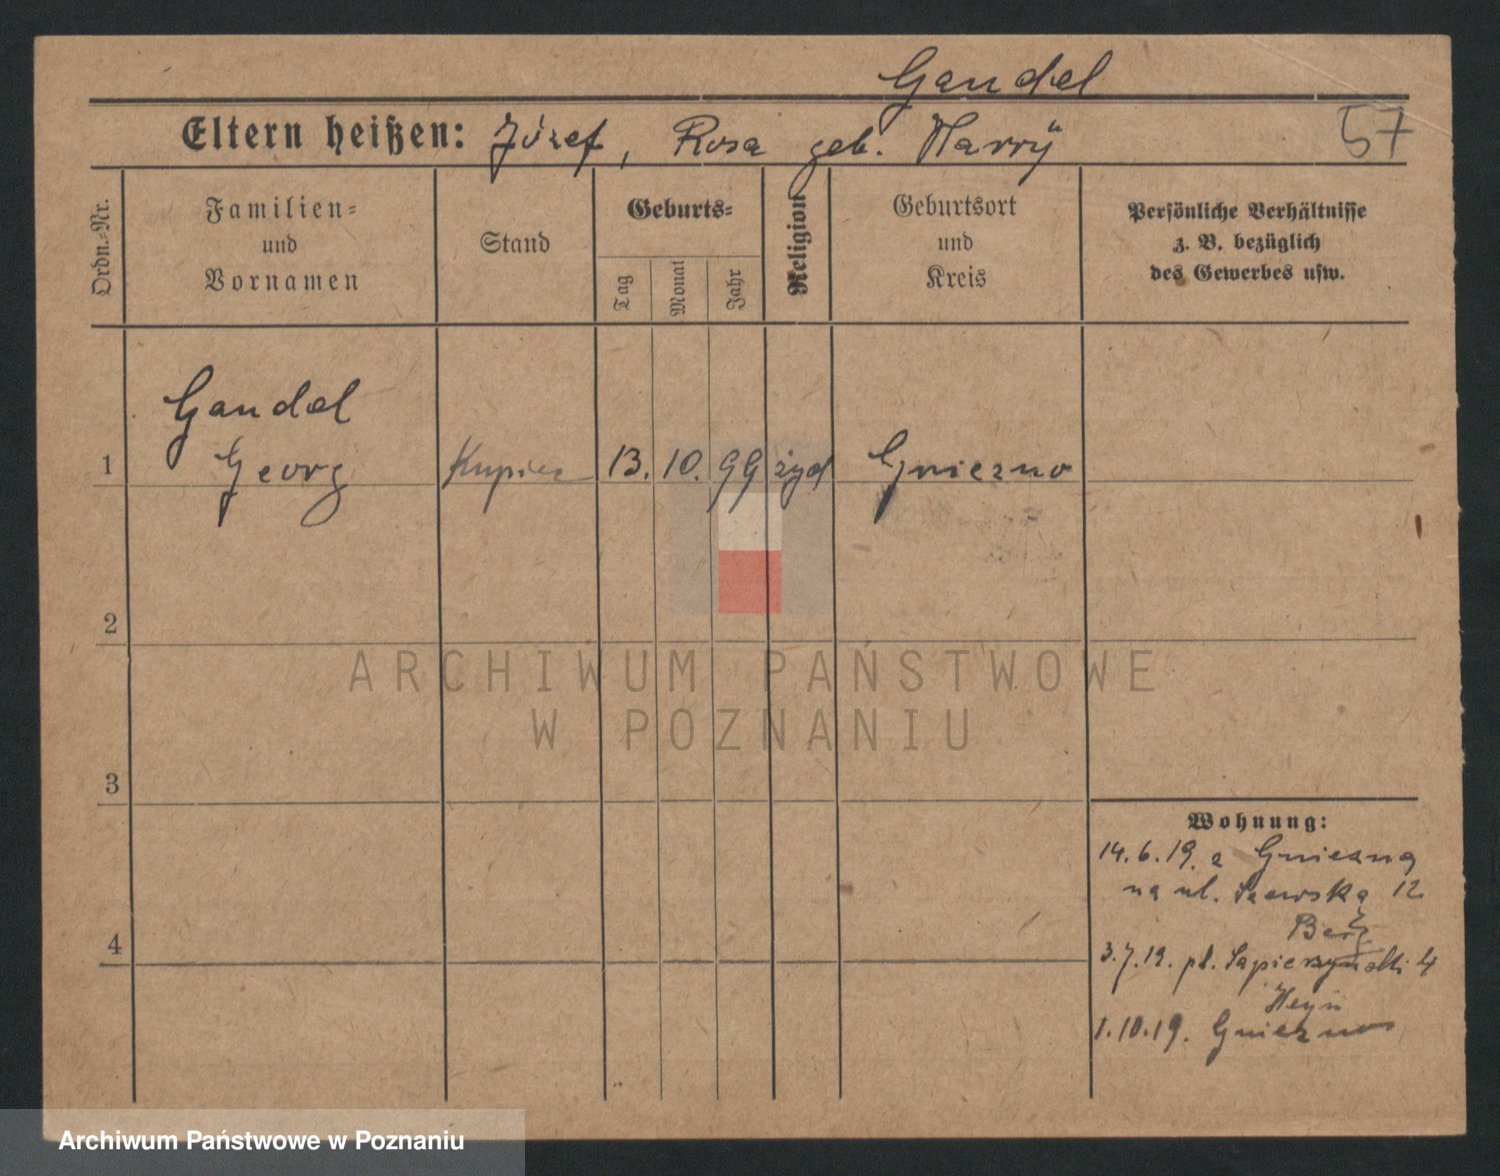 Gandel
Eltern heißen: Józef, Rosa geb. Harry
57
Ordn.-Nr.
Familien-
und
Vornamen
Stand
Geburts-
Tag
Monat
Jahr
Religion
Geburtsort
und
Kreis
Persönliche Verhältnisse
z. B. bezüglich
des Gewerbes usw.
Gandel
1 Georg Kupiec 13. 10. 99 żyd Gniezno
2
ARCHIWUM PAŃSTWOWE
W POZNANIU
3
Wohnung:
14.6.19. z Gniezna
na ul. Szewska 12
4
3.7.19. pl. 4
Heyn
1.10.19. Gniezno
Archiwum Państwowe w Poznaniu